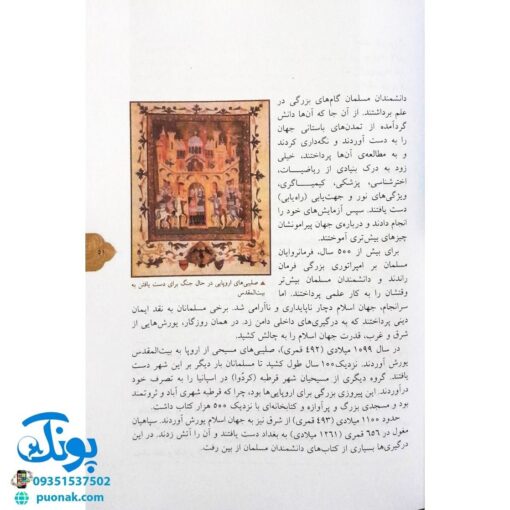 دانشمندان مسلمان گام‌های بزرگی در
علم برداشتند. از آن جا که آن‌ها دانش
گردآمده از تمدن‌های باستانی جهان
را به دست آوردند و نگه‌داری کردند
و به مطالعه‌ی آن‌ها پرداختند، خیلی
زود به درک بنیادی از ریاضیات،
اخترشناسی، پزشکی، کیمیاگری،
ویژگی‌های نور و جهت‌یابی (راه‌یابی)
دست یافتند. سپس آزمایش‌های خود را
انجام دادند و درباره‌ی جهان پیرامونشان
چیزهای بیش‌تری آموختند.
برای بیش از ۵۰۰ سال، فرمانروایان
مسلمان بر امپراتوری بزرگی فرمان
راندند و دانشمندان مسلمان بیش‌تر
وقتشان را به کار علمی پرداختند. اما
▲ صلیبی‌های اروپایی در حال جنگ برای دست یافتن به
بیت‌المقدس
سرانجام، جهان اسلام دچار ناپایداری و ناآرامی شد. برخی مسلمانان به نقد ایمان
دینی پرداختند که به درگیری‌های داخلی دامن زد. در همان روزگار، یورش‌هایی از
شرق و غرب، قدرت جهان اسلام را به چالش کشید.
در سال ۱۰۹۹ میلادی (۴۹۲ قمری)، صلیبی‌های مسیحی از اروپا به بیت‌المقدس
یورش آوردند. نزدیک ۱۰۰ سال طول کشید تا مسلمانان بار دیگر بر این شهر دست
یافتند. گروه دیگری از مسیحیان شهر قرطبه (کردُوا) در اسپانیا را به تصرف خود
درآوردند. این پیروزی بزرگی برای اروپایی‌ها بود، چرا که قرطبه شهری آباد و ثروتمند
بود و مسجدی بزرگ و پرآوازه و کتابخانه‌ای با نزدیک ۵۰۰ هزار کتاب داشت.
حدود ۱۱۰۰ میلادی (۴۹۳ قمری) از شرق نیز به جهان اسلام یورش آوردند. سپاهیان
مغول در ۶۵۶ قمری (۱۲۶۱ میلادی) به بغداد دست یافتند و آن را آتش زدند. در این
درگیری‌ها بسیاری از کتاب‌های دانشمندان مسلمان از بین رفت.
۵۱
پونک
09351537502
puonak.com